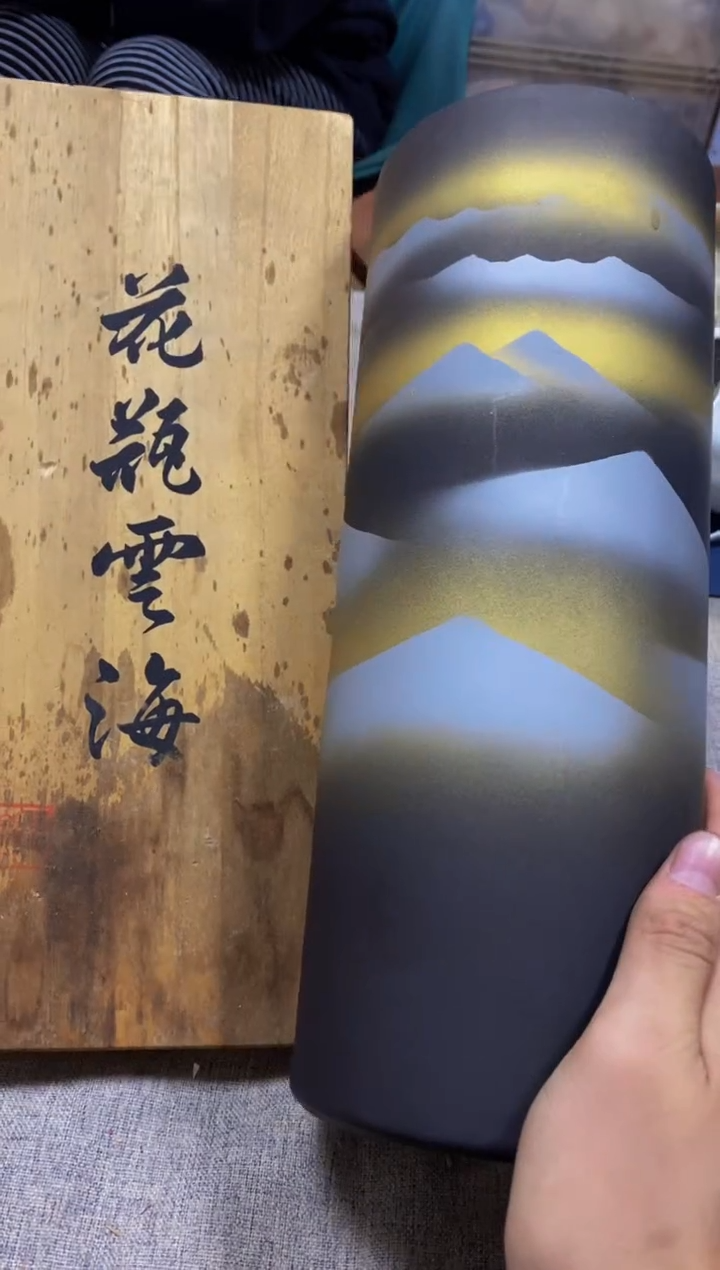 花瓶雲海